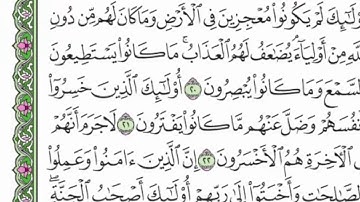 وْلَٰٓئِكَ لَمْ يَكُونُوا۟ مُعْجِزِينَ فِى ٱلْأَرْضِ وَمَا كَانَ لَهُم مِّن دُونِ
للَّهِ مِنْ أَوْلِيَآءَ ۘ يُضَٰعَفُ لَهُمُ ٱلْعَذَابُ ۚ مَا كَانُوا۟ يَسْتَطِيعُونَ
لسَّمْعَ وَمَا كَانُوا۟ يُبْصِرُونَ ٢٠ أُو۟لَٰٓئِكَ ٱلَّذِينَ خَسِرُوٓا۟
نفُسَهُمْ وَضَلَّ عَنْهُم مَّا كَانُوا۟ يَفْتَرُونَ ٢١ لَا جَرَمَ أَنَّهُمْ
ى ٱلْءَاخِرَةِ هُمُ ٱلْأَخْسَرُونَ ٢٢ إِنَّ ٱلَّذِينَ ءَامَنُوا۟ وَعَمِلُوا۟
لصَّٰلِحَٰتِ وَأَخْبَتُوٓا۟ إِلَىٰ رَبِّهِمْ أُو۟لَٰٓئِكَ أَصْحَٰبُ ٱلْجَنَّةِ ۖ